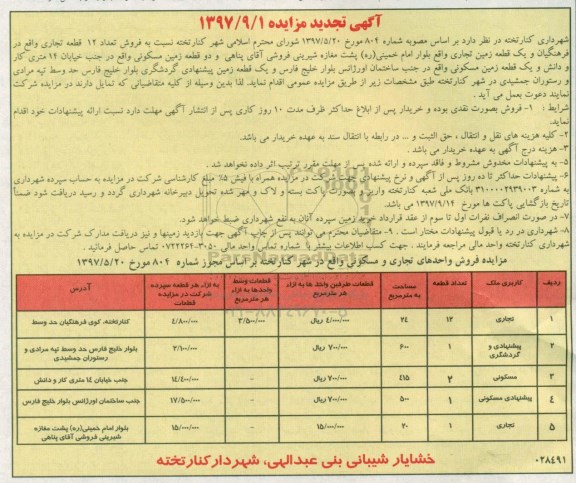 آگهی تجدید مزایده ۱۳۹۷/۹/۱
شهرداری کنارتخته در نظر دارد بر اساس مصوبه شماره ۸۰۴ مورخ ۱۳۹۷/۵/۲۰ شورای محترم اسلامی شهر کنارتخته نسبت به فروش تعداد ۱۲ قطعه تجاری واقع در
فرهنگیان و یک قطعه زمین تجاری واقع بلوار امام خمینی(ره) پشت مغازه شیرینی فروشی آقای پناهی و دو قطعه زمین مسکونی واقع در جنب خیابان ۱۴ متری کار
و دانش و یک قطعه زمین مسکونی واقع در جنب ساختمان اورژانس بلوار خلیج فارس و یک قطعه زمین پیشنهادی گردشگری بلوار خلیج فارس حد وسط تپه مرادی
و رستوران جمشیدی در شهر کنارتخته طبق مشخصات زیر از طریق مزایده عمومی اقدام نماید. لذا بدین وسیله از کلیه متقاضیانی که تمایل دارند در مزایده شرکت
نمایند دعوت بعمل می آید .
شرایط : ۱- فروش بصورت نقدی بوده و خریدار پس از ابلاغ حداکثر ظرف مدت ۱۰ روز کاری پس از انتشار آگهی مهلت دارد نسبت ارائه پیشنهادات خود اقدام
نماید.
۲- کلیه هزینه های نقل و انتقال ، حق الثبت و ... در رابطه با انتقال سند به عهده خریدار می باشد.
۳- هزینه درج آگهی به عهده خریدار می باشد .
۵- به پیشنهادات مخدوش مشروط و فاقد سپرده و ارائه شده پس از مهلت مقرر ترتیب اثر داده نخواهد شد .
۶- پیشنهادات حداکثر تا ده روز پس از آگهی و نرخ پیشنهادی جهت شرکت در مزایده همراه با فیش ۵٪ مبلغ کارشناسی شرکت در مزایده به حساب سپرده شهرداری
به شماره ۳۱۰۰۰۰۲۹۳۹۰۰۳ بانک ملی شعبه کنارتخته واریز و بصورت پاکت بسته و لاک و مهر شده تحویل دبیرخانه شهرداری گردد و رسید دریافت شود ضمناً
تاریخ بازگشایی پاکت ها مورخ ۱۳۹۷/۹/۱۴ می باشد.
۷- در صورت انصراف نفرات اول تا سوم از عقد قرارداد خرید زمین سپرده آنان به نفع شهرداری ضبط خواهد شود.
۸- شهرداری در رد یا قبول پیشنهادات مختار است . ۹- متقاضیان محترم می توانند پس از چاپ آگهی جهت بازدید زمینها و نیز دریافت مدارک شرکت در مزایده به
شهرداری کنارتخته واحد مالی مراجعه فرمایند . جهت کسب اطلاعات بیشتر با شماره تماس واحد مالی ۳۰۵۰-۰۷۲۲۲۶۴ تماس حاصل فرمائید .
مزایده فروش واحدهای تجاری و مسکونی واقع در شهر کنارتخته بر اساس مجوز شماره ۸۰۴ مورخ ۱۳۹۷/۵/۲۰
ردیف کاربری ملک تعداد قطعه مساحت به مترمربع قطعات طرفین واحد ها به ازاء هر مترمربع قطعات وسط واحدها به ازاء هر مترمربع به ازاء هر قطعه سپرده شرکت در مزایده آدرس
۱ تجاری ۱۲ ۲۴ ۴/۰۰۰/۰۰۰ ریال ۳/۵۰۰/۰۰۰ ۴/۸۰۰/۰۰۰ کنارتخته، کوی فرهنگیان حد وسط
۲ پیشنهادی و گردشگری ۱ ۶۰۰ ۷۰۰/۰۰۰ ریال - ۲/۱۰۰/۰۰۰ بلوار خلیج فارس حد وسط تپه مرادی و رستوران جمشیدی
۳ مسکونی ۲ ۴۱۵ ۷۰۰/۰۰۰ ریال - ۱۴/۴۰۰/۰۰۰ جنب خیابان ۱۴ متری کار و دانش
۴ پیشنهادی مسکونی ۱ ۵۰۰ ۷۰۰/۰۰۰ ریال - ۱۷/۵۰۰/۰۰۰ جنب ساختمان اورژانس بلوار خلیج فارس
۵ تجاری ۱ ۲۰ ۱۵/۰۰۰/۰۰۰ ریال - ۱۵/۰۰۰/۰۰۰ بلوار امام خمینی(ره) پشت مغازه شیرینی فروشی آقای پناهی
۰۲۸۴۹۱ خشایار شیبانی بنی عبدالهی، شهردار کنارتخته